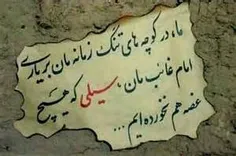 ما، در کوچه های تنگ زمانه مان برای یاری
امام غائب مان، سیلی که هیچ
غصه هم نخورده ایم...